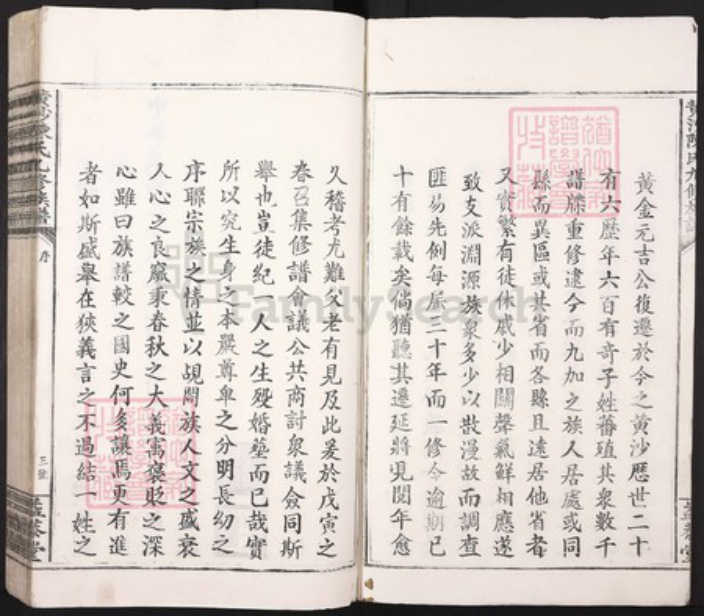 黄金元吉公復遷於今之黄沙歷世二十
有六歷年六百有奇子姓蕃殖其衆數千
譜牒重修逮今而九加之族人居處或同
縣而異區或共省而各縣且遠居他省者
又實繁有徒休戚少相關聲氣鮮相應遂
致支派淵源族衆多少以散漫故而調查
匪易先例每届三十年而一修今逾期已
十有餘載矣倘猶聽其遷延將見閲年愈
久稽考尤難父老有見及此爰於戊寅之
春召集修譜會議公共商討衆議僉同斯
舉也豈徒紀一人之生殁婚塟而已哉實
所以究生身之本嚴尊卑之分明長幼之
序聯宗族之情並以覘閤族人文之盛衰
人心之良窳秉春秋之大義寓褒貶之深
心雖曰族譜較之國史何多讓焉更有進
者如斯盛舉在狹義言之不過結一姓之
序
三號
FamilySearch